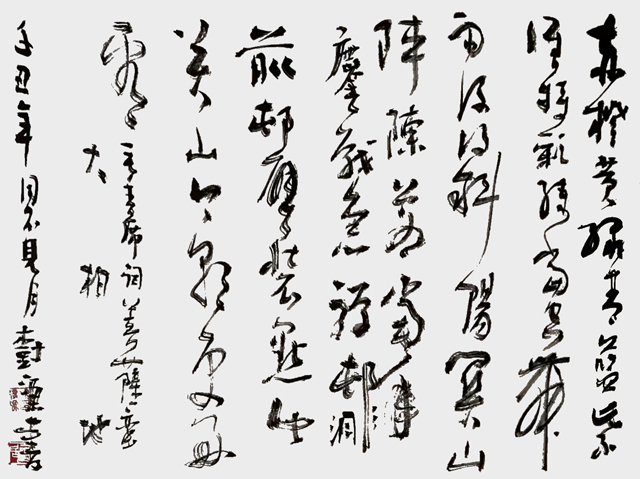 赤橙黄绿青蓝紫
谁持彩练当空舞
雨后复斜陽关山
阵陣苍当年
鏖战急弹邨洞
前邨壁装點此
关山今朝更好
看毛主席词菩萨蛮
大柏地
丑年